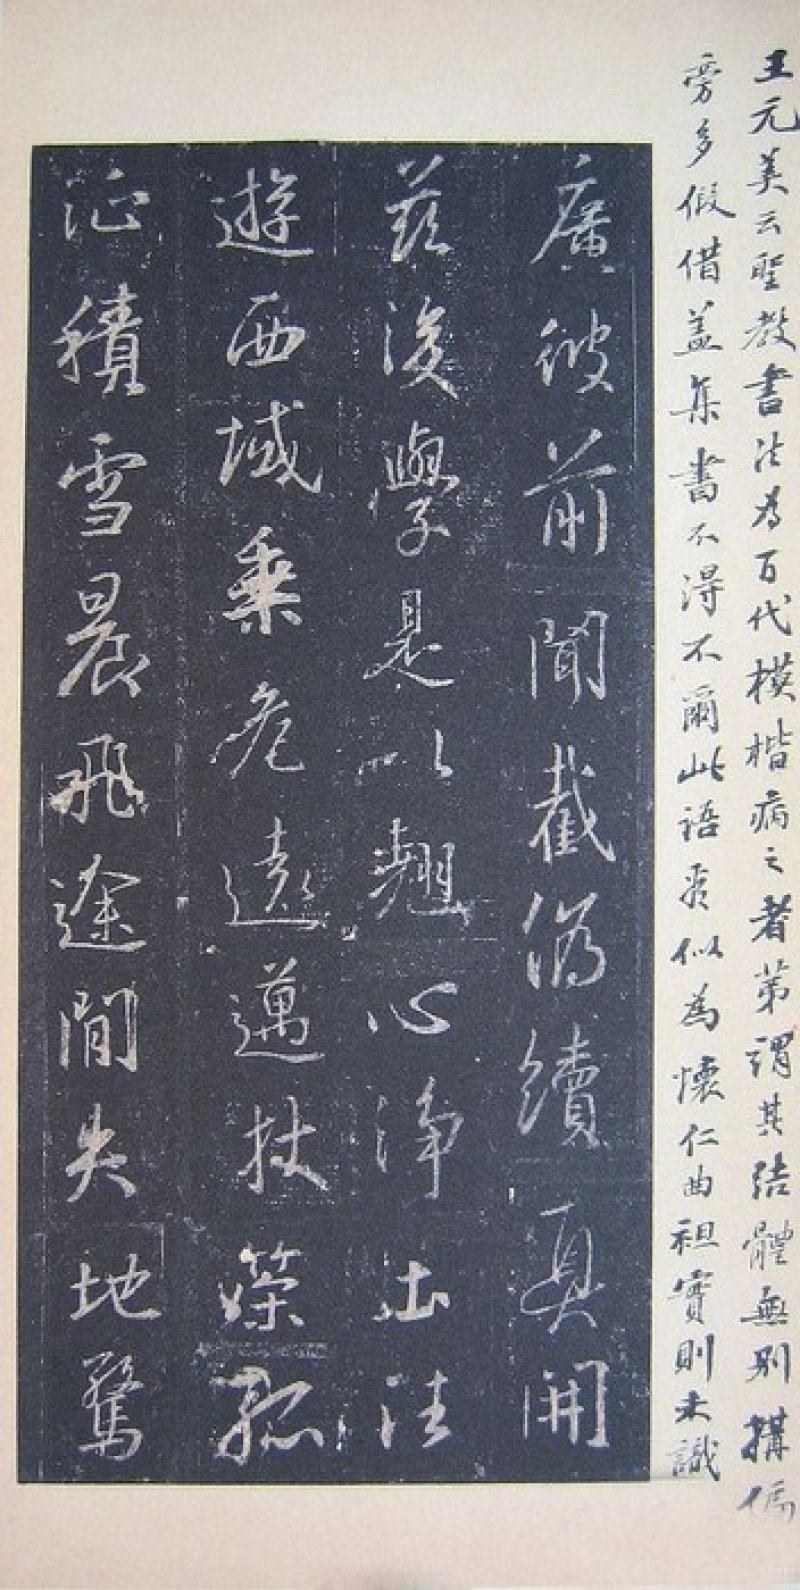 王元美云聖教書法為百代模楷病之者第謂其結體無別搆偏
旁多假借蓋集書不得不爾此語頗似為懷仁曲袒實則未識
廣彼前聞截偽續真開
茲後學是以翹心淨土法
遊西域乘危遠邁杖策孤
征積雪晨飛途間失地驚